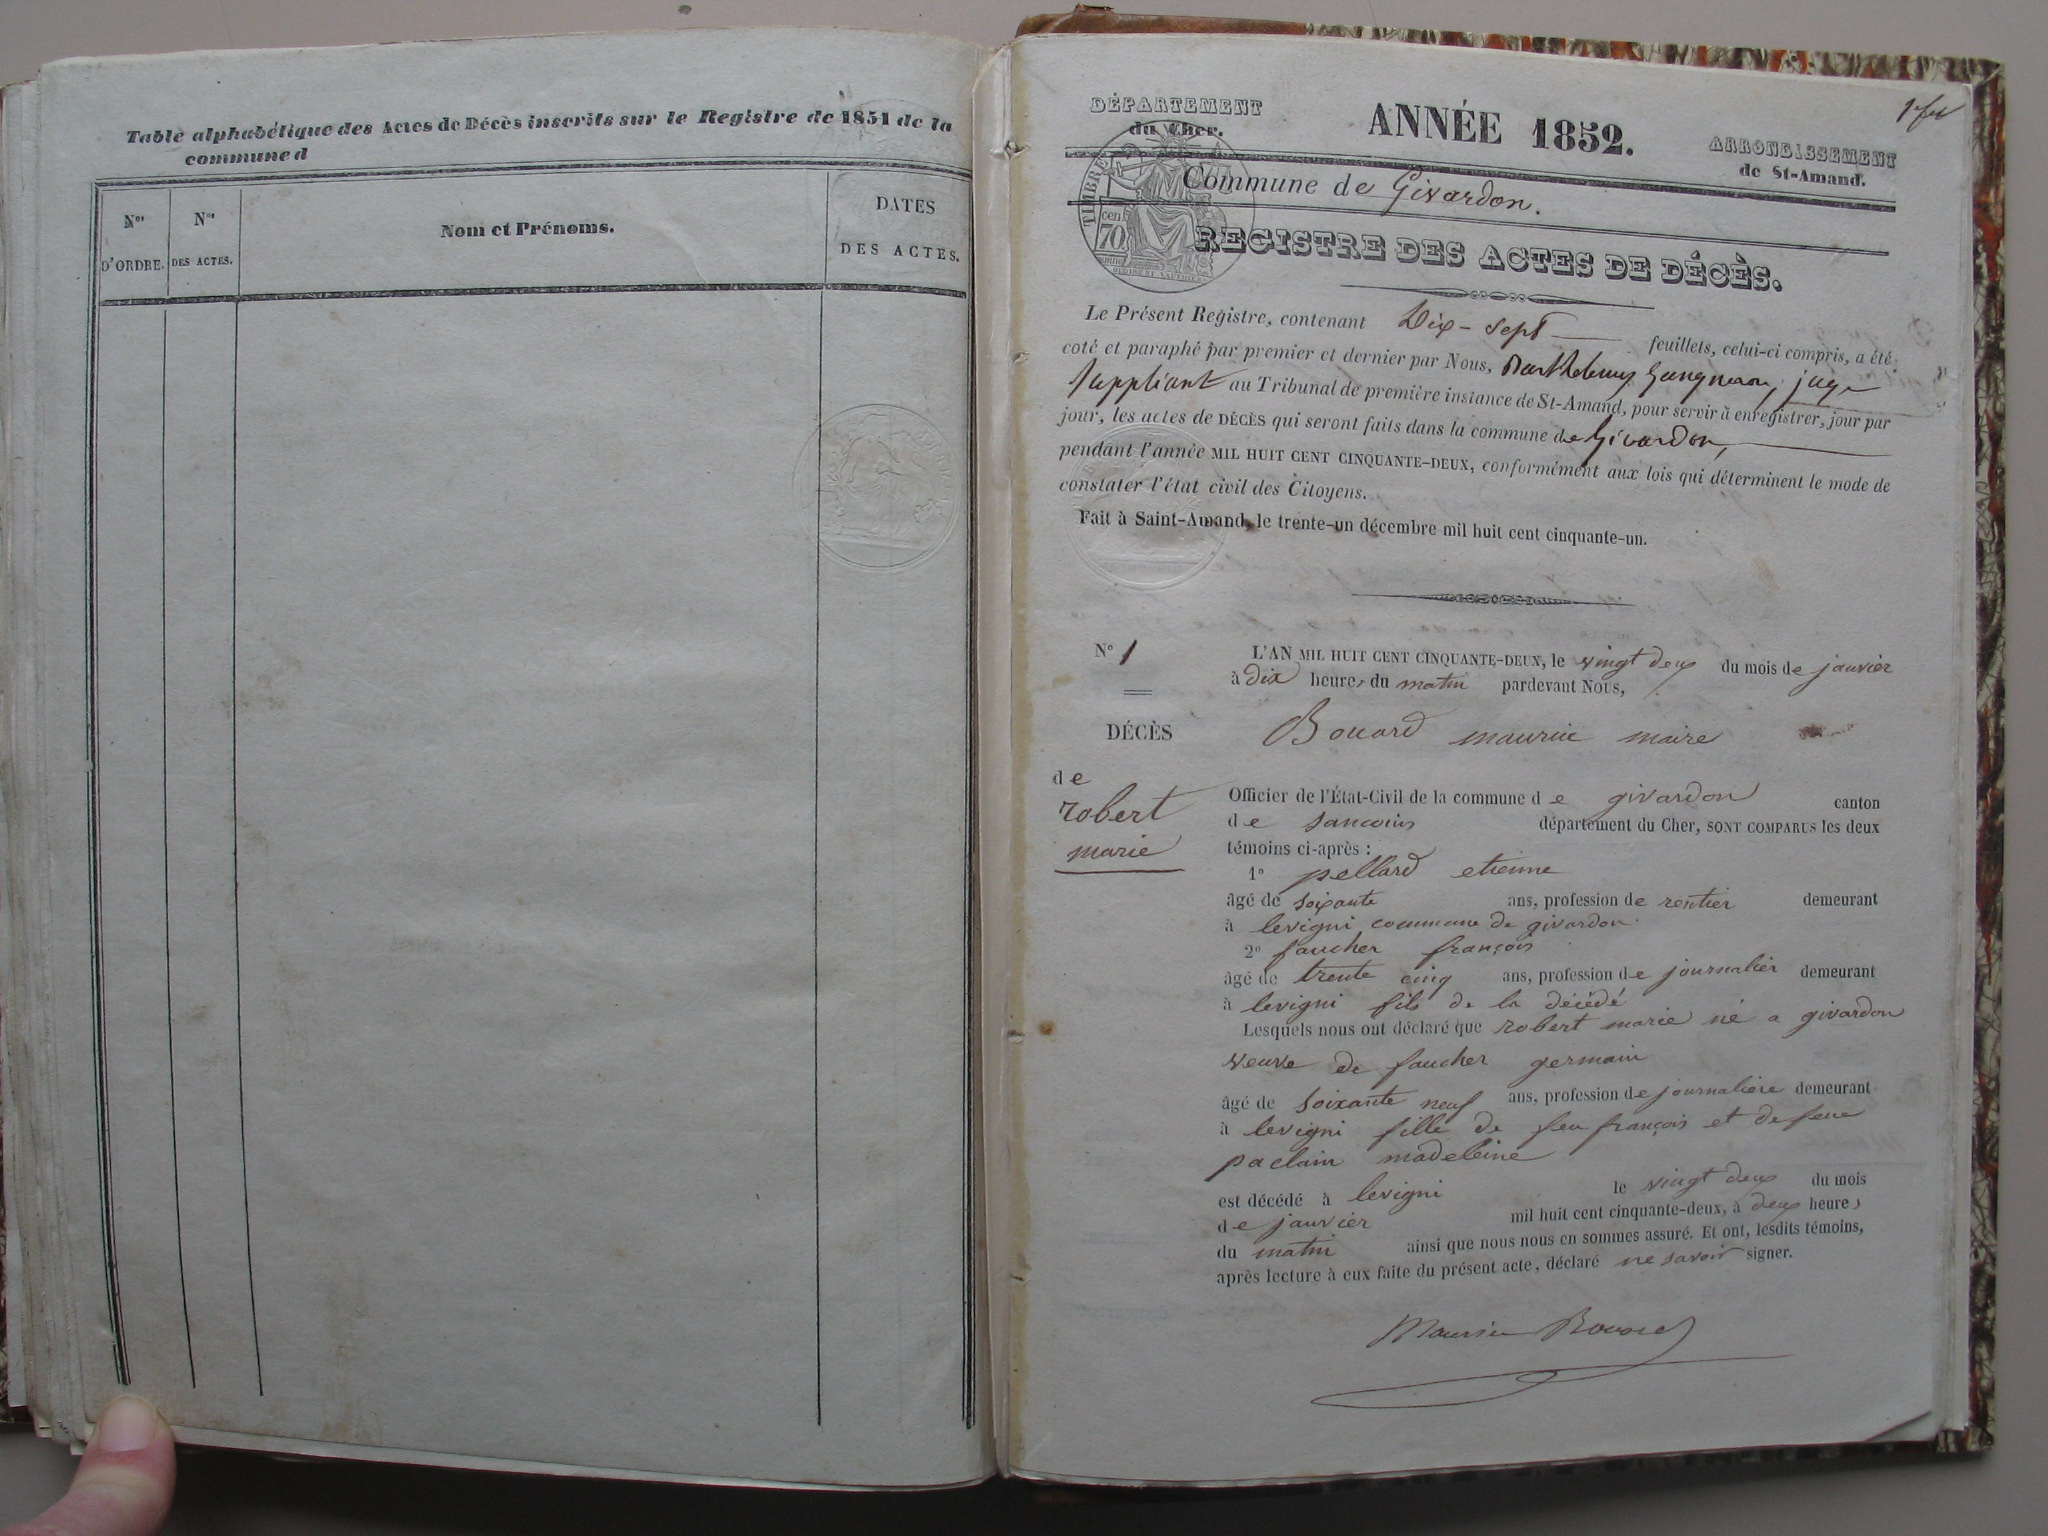 Table alphabétique des Actes de Décès inscrits sur le Registre de 1851 de la
commune d
Nos
D'ORDRE.
Nos
DES ACTES.
Nom et Prénoms.
DATES
DES ACTES.
1er fet
DÉPARTEMENT
du Cher.
ANNÉE 1852.
ARRONDISSEMENT
de St-Amand.
Commune de Givardon.
TIMBRE
70
cen
REGISTRE DES ACTES DE DÉCÈS.
Le Présent Registre, contenant Dix-sept feuillets, celui-ci compris, a été
coté et paraphé par premier et dernier par Nous, Barthelemy juge
suppléant au Tribunal de première instance de St-Amand, pour servir à enregistrer, jour par
jour, les actes de DÉCÈS qui seront faits dans la commune de Givardon,
pendant l'année MIL HUIT CENT CINQUANTE-DEUX, conformément aux lois qui déterminent le mode de
constater l'état civil des Citoyens.
Fait à Saint-Amand, le trente-un décembre mil huit cent cinquante-un.
No 1
L'AN MIL HUIT CENT CINQUANTE-DEUX, le vingt deux du mois de janvier
à dix heures du matin pardevant NOUS,
DÉCÈS
Bouard maurice maire
de
robert
marie
Officier de l'État-Civil de la commune de givardon canton
de sancoins département du Cher, SONT COMPARUS les deux
témoins ci-après :
1o pellard etienne
âgé de soixante ans, profession de rentier demeurant
à levigni commune de givardon.
2o faucher françois
âgé de trente cinq ans, profession de journalier demeurant
à levigni fils de la décédé
Lesquels nous ont déclaré que robert marie né a givardon
veuve de faucher germain
âgé de soixante neuf ans, profession de journaliere demeurant
à levigni fille de feu françois et de feue
paclain madeleine
est décédé à levigni le vingt deux du mois
de janvier mil huit cent cinquante-deux, à deux heures
du matin ainsi que nous nous en sommes assuré. Et ont, lesdits témoins,
après lecture à eux faite du présent acte, déclaré ne savoir signer.
Maurice Bouard